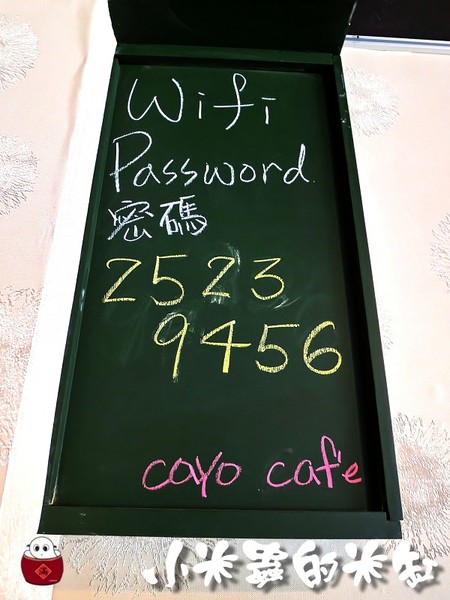 Wifi
Password
密碼
2523
9456
cayo cafe
小米蟲的米缸